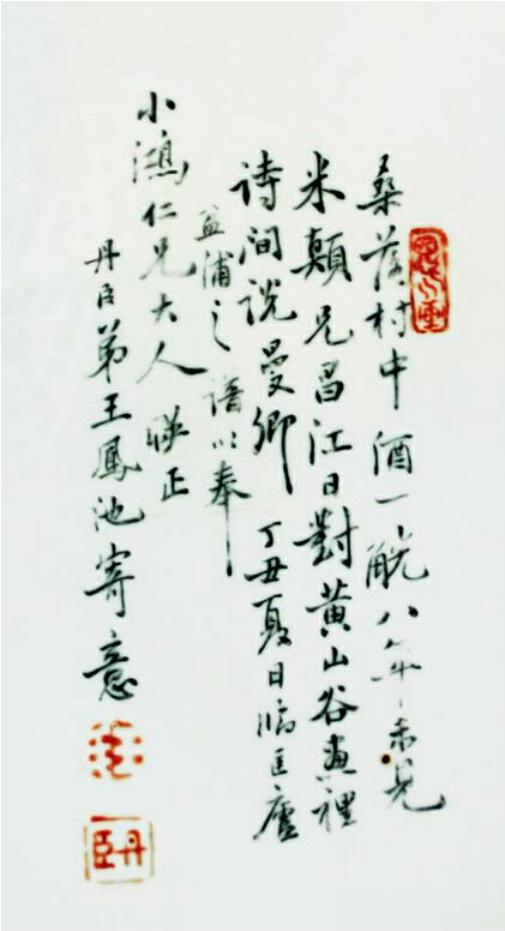 桑落村中酒一觥八年未見
米顛兄昌江日對黃山谷畫裡
詩間說曼卿 丁丑夏日臨匡廬
盆浦之譜以奉
小鴻仁兄大人 正
丹臣弟王鳳池寄意
丹臣